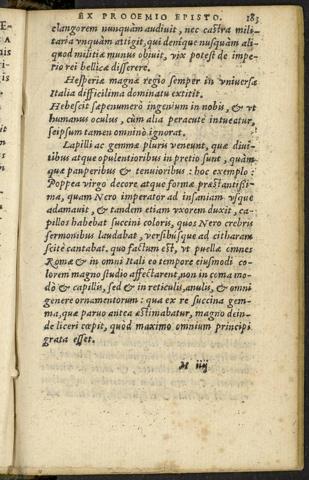 EX PROOEMIO EPISTO. 183
clangorem nunquàm audiuit, nec castra mili-
taria vnquàm attigit, qui denique nusquàm ali-
quod militiæ munus obiuit, vix potest de impe-
rio rei bellicæ disserere.
Hesperiæ magnæ regio semper in vniuersa
Italia difficilima dominatu extitit.
Hebescit sæpenumerò ingenium in nobis, & vt
humanus oculus, cùm alia peracutè intueatur,
seipsum tamen omninò ignorat.
Lapilli ac gemmæ pluris veneunt, quæ diui-
tibus atque opulentioribus in pretio sunt, quàm
quæ pauperibus & tenuioribus: hoc exemplo:
Poppea virgo decore atque formæ præstantissi-
ma, quam Nero imperator ad insaniam vsque
adamauit, & tandem etiam vxorem duxit, ca-
pillos habebat succini coloris, quos Nero crebris
sermonibus laudabat, versibúsque ad citharam
scitè cantabat. quo factum est, vt puellæ omnes
Romæ & in omni Italia eo tempore eiusmodi co-
lorem magno studio affectarent, non in coma mo-
dò & capillis, sed & in reticulis, anulis, & omni
genere ornamentorum: qua ex re succina gem-
ma, quæ paruo antea æstimabatur, magno dein-
de liceri cœpit, quod maximo omnium principi
grata esset.
M iiij